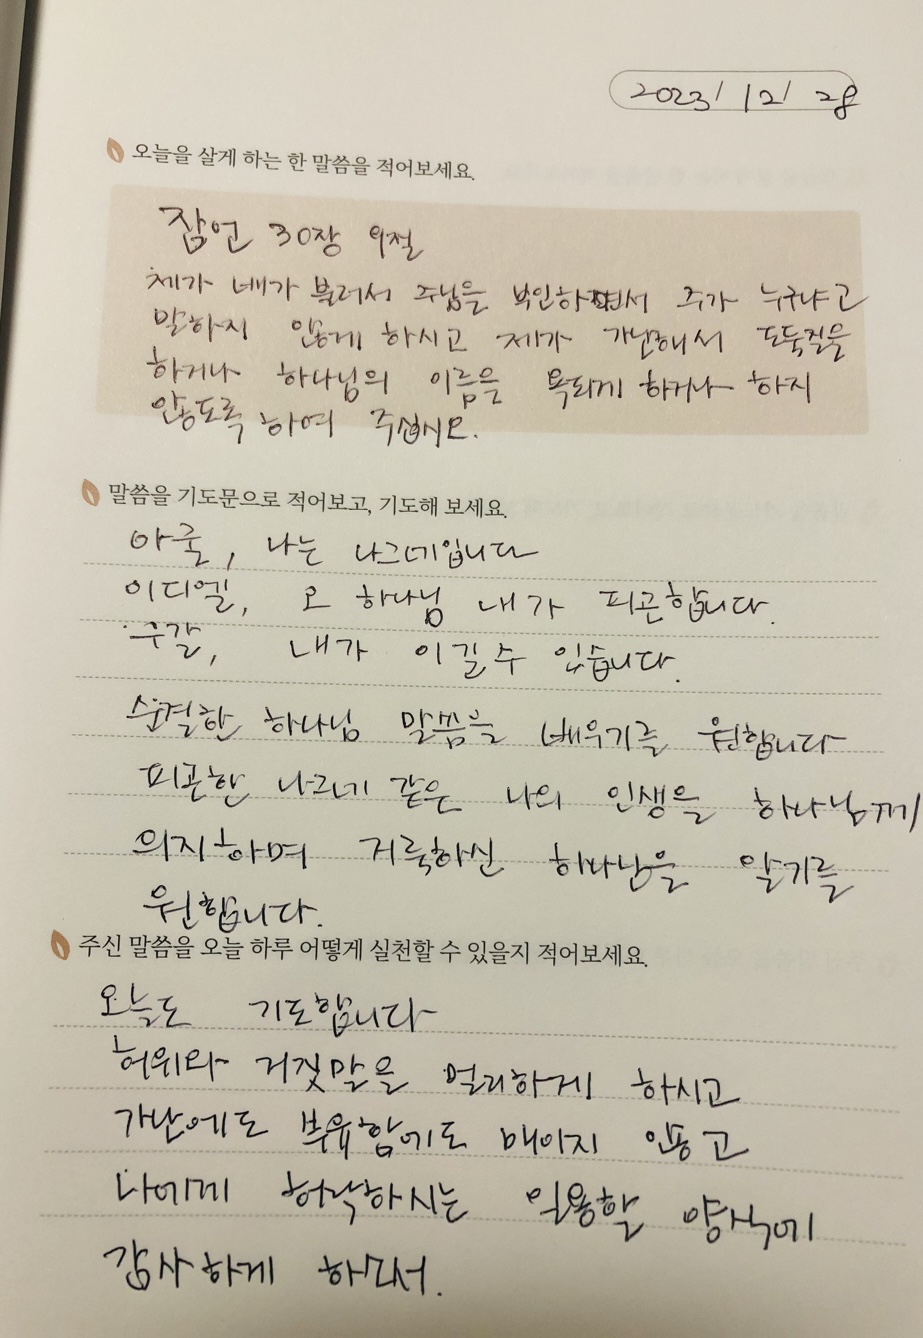 2023/ 12/ 28
오늘을 살게 하는 한 말씀을 적어보세요.
잠언 30장 9절
제가 배가 불러서 주님을 부인하면서 주가 누구냐고
말하지 않게 하시고 제가 가난해서 도둑질을
하거나 하나님의 이름을 욕되게 하거나 하지
않도록 하여 주십시오.
말씀을 기도문으로 적어보고, 기도해 보세요.
아굴, 나는 나그네입니다
이디엘, 오 하나님 내가 피곤합니다.
우갈, 내가 이길수 있습니다.
순결한 하나님 말씀을 배우기를 원합니다
피곤한 나그네 같은 나의 인생을 하나님께
의지하며 거룩하신 하나님을 알기를
원합니다.
주신 말씀을 오늘 하루 어떻게 실천할 수 있을지 적어보세요.
오늘도 기도합니다
허위와 거짓말을 멀리하게 하시고
가난에도 부유함에도 매이지 않고
나에게 허락하시는 일용할 양식에
감사하게 하소서.